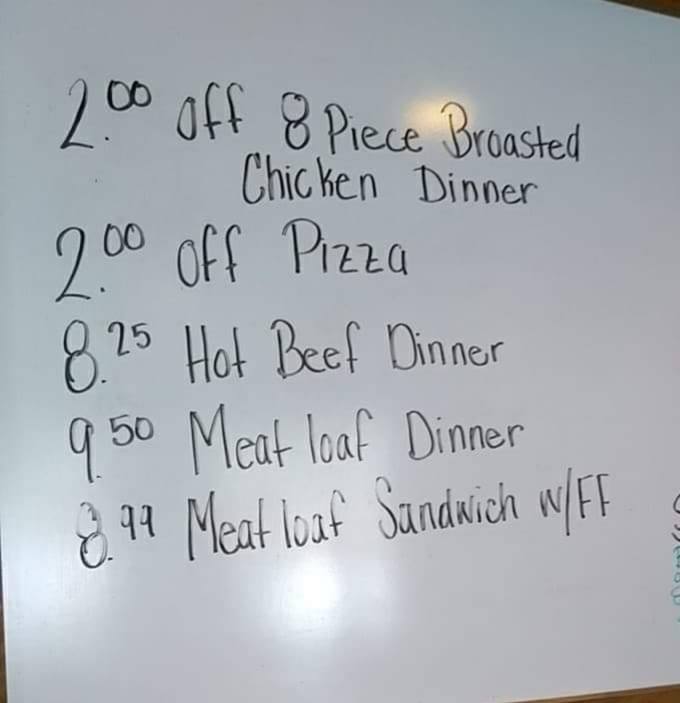 2.00 off 8 Piece Broasted
Chicken Dinner
2.00 off Pizza
8.25 Hot Beef Dinner
9.50 Meat loaf Dinner
8.99 Meat loaf Sandwich w/FF